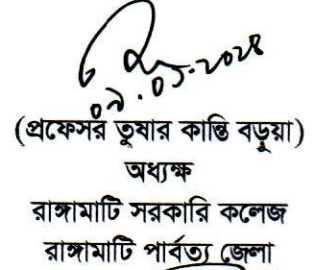 ০৯.০১.২০২৪
(প্রফেসর তুষার কান্তি বড়ুয়া)
অধ্যক্ষ
রাঙ্গামাটি সরকারি কলেজ
রাঙ্গামাটি পার্বত্য জেলা